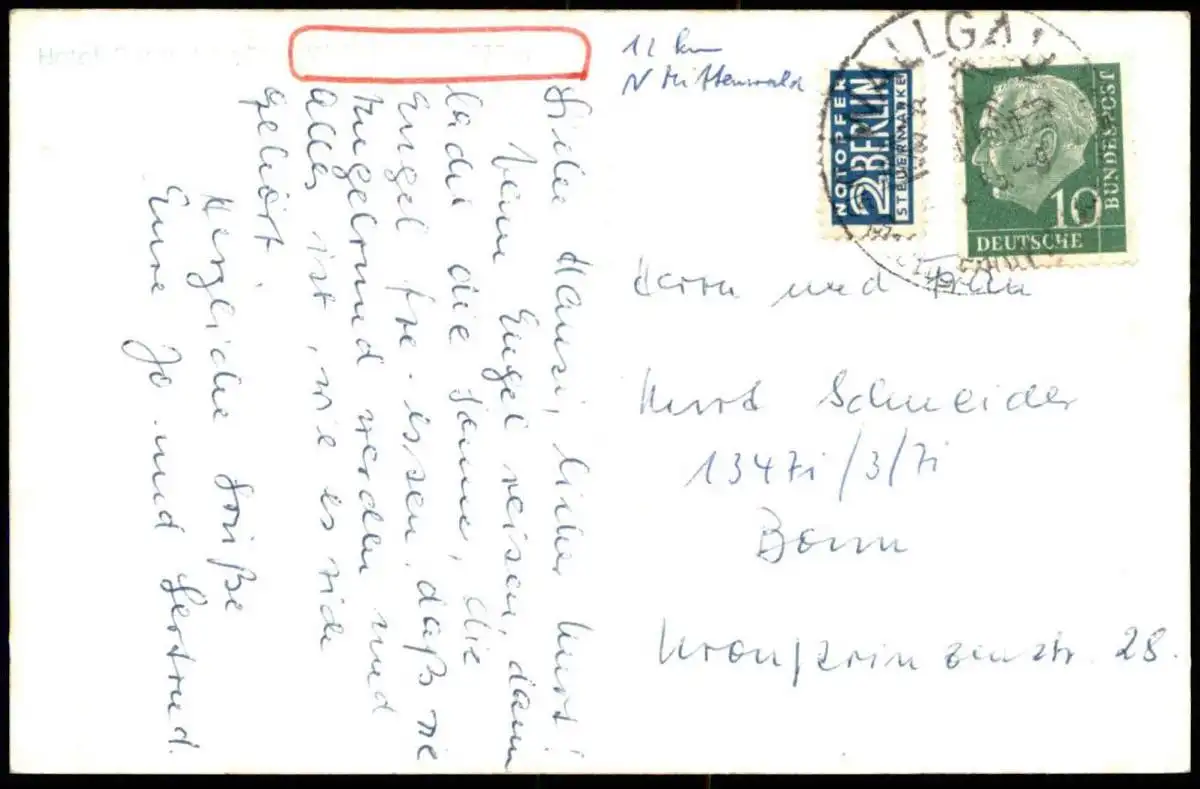 12 km
N Mittenwald
WALLGAU
NOTOPFER
2 BERLIN
STEUERMARKE
10
DEUTSCHE
BUNDESPOST
Liebe Hansi, lieber Kurt!
Wenn Engel reisen, dann
lacht die Sonne, die
Engel fre. essen, daß sie
kugelrund werden und
alles ist, wie es sich
gehört.
Herzliche Grüße
Eure Jo und Gertrud.
Herrn und Frau
Kurt Schneider
Bonn
Kronprinzenstr. 28.